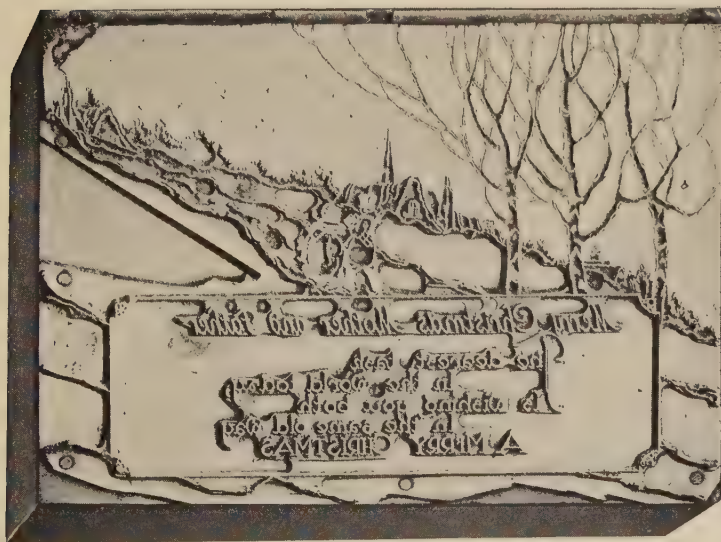 Merry Christmas Mother and Father
The dearest task
in the world today
Is wishing you both
in the same old way
A MERRY CHRISTMAS